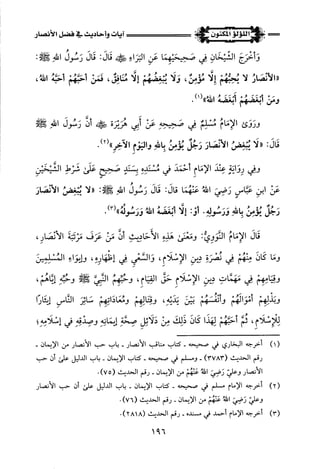 اللؤلؤ المكنون
آيات وأحاديث في فضل الأنصار
وَأَخْرَجَ الشَّيْخَانِ فِي صَحِيحَيْهِمَا عَنِ البَرَاءِ ﷺ قَالَ: قَالَ رَسُولُ اللهِ ﷺ:
«الأَنْصَارُ لَا يُحِبُّهُمْ إِلَّا مُؤْمِنٌ، وَلَا يُبْغِضُهُمْ إِلَّا مُنَافِقٌ، فَمَنْ أَحَبَّهُمْ أَحَبَّهُ اللهُ،
وَمَنْ أَبْغَضَهُمْ أَبْغَضَهُ اللهُ»(١).
وَرَوَى الإِمَامُ مُسْلِمٌ فِي صَحِيحِهِ عَنْ أَبِي هُرَيْرَةَ أَنَّ رَسُولَ اللهِ ﷺ
قَالَ: «لَا يُبْغِضُ الأَنْصَارَ رَجُلٌ يُؤْمِنُ بِاللهِ وَاليَوْمِ الآخِرِ»(٢).
وَفِي رِوَايَةٍ عِنْدَ الإِمَامِ أَحْمَدَ فِي مُسْنَدِهِ بِسَنَدٍ صَحِيحٍ عَلَى شَرْطِ الشَّيْخَيْنِ
عَنْ ابنِ عَبَّاسٍ رَضِيَ اللهُ عَنْهُمَا قَالَ: قَالَ رَسُولُ اللهِ ﷺ: «لَا يُبْغِضُ الأَنْصَارَ
رَجُلٌ يُؤْمِنُ بِاللهِ وَرَسُولِهِ. أَوْ: إِلَّا أَبْغَضَهُ اللهُ وَرَسُولُهُ»(٣).
قَالَ الإِمَامُ النَّوَوِيُّ: وَمَعْنَى هَذِهِ الأَحَادِيثِ أَنَّ مَنْ عَرَفَ مَرْتَبَةَ الأَنْصَارِ،
وَمَا كَانَ مِنْهُمْ فِي نُصْرَةِ دِينِ الإِسْلَامِ، وَالسَّعْيِ فِي إِظْهَارِهِ، وَإِيوَاءِ المُسْلِمِينَ
وَقِيَامِهِمْ فِي مُهِمَّاتِ دِينِ الإِسْلَامِ حَقَّ القِيَامِ، وَحُبِّهِمُ النَّبِيَّ ﷺ وَحُبِّهِ إِيَّاهُمْ،
وَبَذْلِهِمْ أَمْوَالَهُمْ وَأَنْفُسَهُمْ بَيْنَ يَدَيْهِ، وَقِتَالِهِمْ وَمُعَادَاتِهِمْ سَائِرَ النَّاسِ إِيثَارًا
لِلْإِسْلَامِ، ثُمَّ أَحَبَّهُمْ لِهَذَا كَانَ ذَلِكَ مِنْ دَلَائِلِ صِحَّةِ إِيمَانِهِ وَصِدْقِهِ فِي إِسْلَامِهِ؛
(١) أخرجه البخاري في صحيحه ـ كتاب مناقب الأنصار ـ باب حب الأنصار من الإيمان ـ
رقم الحديث (٣٧٨٣) ـ ومسلم في صحيحه ـ كتاب الإيمان ـ باب الدليل على أن حب
الأنصار وعلي رَضِيَ اللهُ عَنْهُمْ من الإيمان ـ رقم الحديث (٧٥).
(٢) أخرجه الإمام مسلم في صحيحه ـ كتاب الإيمان ـ باب الدليل على أن حب الأنصار
وعلي رَضِيَ اللهُ عَنْهُمْ من الإيمان ـ رقم الحديث (٧٦).
(٣) أخرجه الإمام أحمد في مسنده ـ رقم الحديث (٢٨١٨).
١٩٦